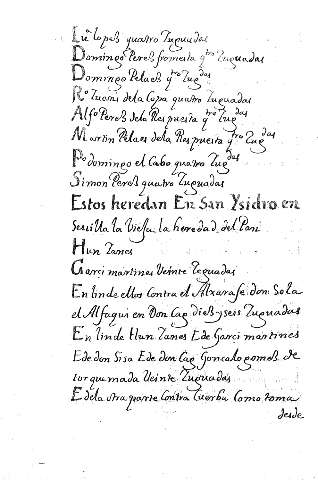 Lu.º Lopeß quatro Zuguadas
Domingo Pereß fromesta q.tro Zuguadas
Domingo Pelaeß q.tro Zug.das
R.º Juani de la Copa quatro Zuguadas
Alf.º Pereß de la Respuesta q.tro Zug.das
Martin Pelaes de la Respuesta q.tro Zug.das
P.º domingo el Cabo quatro Zug.das
Simon Pereß quatro Zuguadas
Estos heredan En San Ysidro en
Sevilla la Vieja la heredad del Pan
Hun Zanes
Garci martines Veinte Zuguadas
En linde ellos contra el Alxarafe don
el Alfaqui en Don Cag dieß y seis Zuguadas
En linde Hun Zanes E de Garci martines
E de don Sisa E de don Cag Goncalo gomeß de
torquemada Veinte Zuguadas
E de la otra parte contra Cuerba Como toma
desde